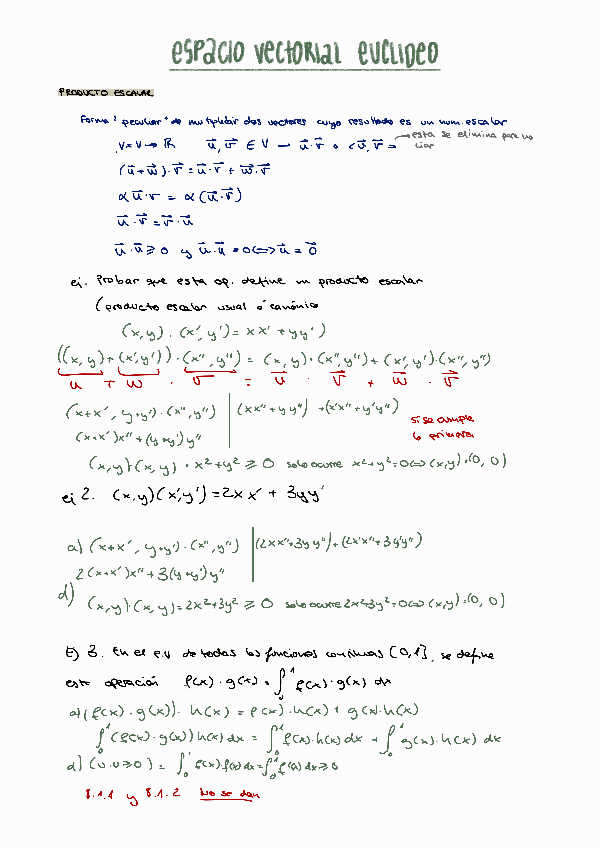 ESPACIO VECTORIAL EUCLIDEO
PRODUCTO ESCALAR
Forma "peculiar" de multiplicar dos vectores cuyo resultado es un num. escalar
V×V → ℝ   u⃗, v⃗ ∈ V — u⃗·v⃗ o <u⃗, v⃗> → esta se elimina para no liar
(u⃗+w⃗)·v⃗ = u⃗·v⃗ + w⃗·v⃗
α u⃗·v = α(u⃗·v⃗)
u⃗·v⃗ = v⃗·u⃗
u⃗·u⃗ ≥ 0 y u⃗·u⃗ = 0 <=> u⃗ = 0⃗
ej. Probar que esta op. define un producto escalar
(producto escalar usual o canónico
(x,y)·(x',y') = xx' + yy')
((x,y)+(x',y'))·(x'',y'') = (x,y)·(x'',y'') + (x',y')·(x'',y'')
u + w · v = u⃗ · v⃗ + w⃗ · v⃗
(x+x', y+y')·(x'',y'') | (xx''+yy'') + (x'x''+y'y'')
(x+x')x''+(y+y')y''
si se cumple
la primera
(x,y)·(x,y) = x²+y² ≥ 0 solo ocurre x²+y²=0 <=> (x,y)=(0,0)
ej 2. (x,y)(x',y') = 2xx' + 3yy'
a) (x+x', y+y')·(x'',y'') | (2xx''+3yy'')+(2x'x''+3y'y'')
2(x+x')x''+3(y+y')y''
d)
(x,y)·(x,y) = 2x²+3y² ≥ 0 solo ocurre 2x²+3y²=0 <=> (x,y)=(0,0)
Ej 3. En el e.v de todas las funciones continuas [0,1], se define
esta operación f(x)·g(x) = ∫₀¹ f(x)·g(x) dx
a) (f(x)·g(x))·h(x) = f(x)·h(x) + g(x)·h(x)
∫₀¹ (f(x)·g(x))h(x) dx = ∫₀¹ f(x)·h(x) dx + ∫₀¹ g(x)·h(x) dx
d) (u·u≥0) = ∫₀¹ f(x)·f(x) dx = ∫₀¹ f²(x) dx ≥ 0
8.1.1 y 8.1.2 No se dan